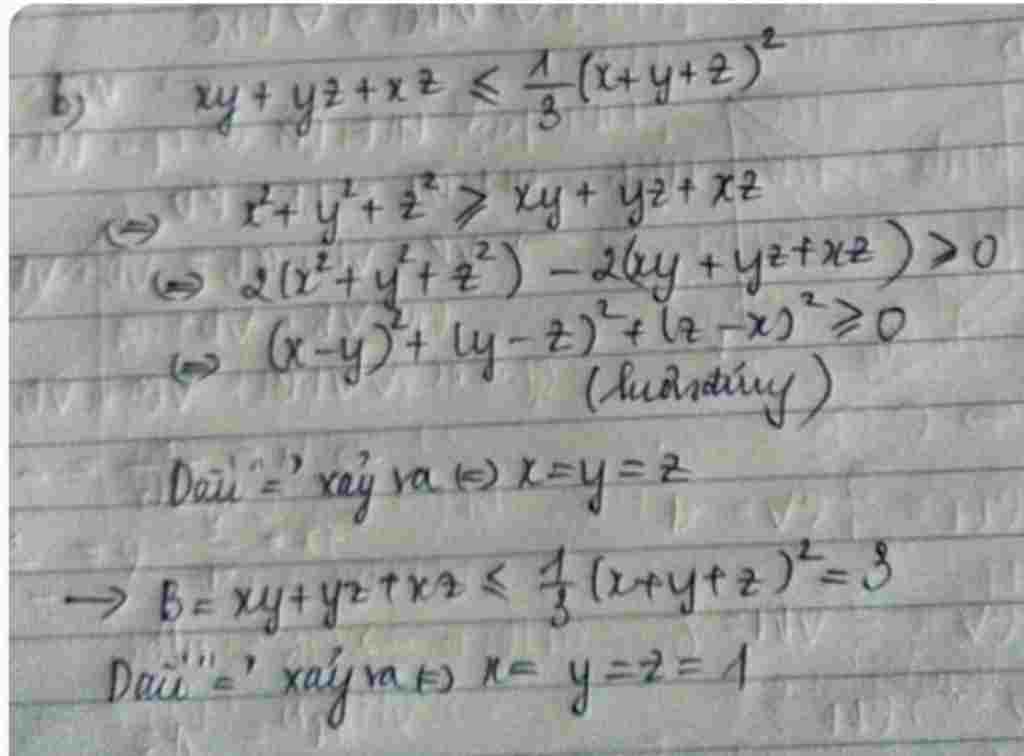 b, xy + yz + xz ≤ 1/3 (x+y+z)²
(=) x² + y² + z² ≥ xy + yz + xz
(=) 2(x² + y² + z²) - 2(xy + yz + xz) ≥ 0
(=) (x-y)² + (y-z)² + (z-x)² ≥ 0
(luôn đúng)
Dấu "=" xảy ra (=) x = y = z
→ B = xy + yz + xz ≤ 1/3 (x+y+z)² = 3
Dấu "=" xảy ra (=) x = y = z = 1